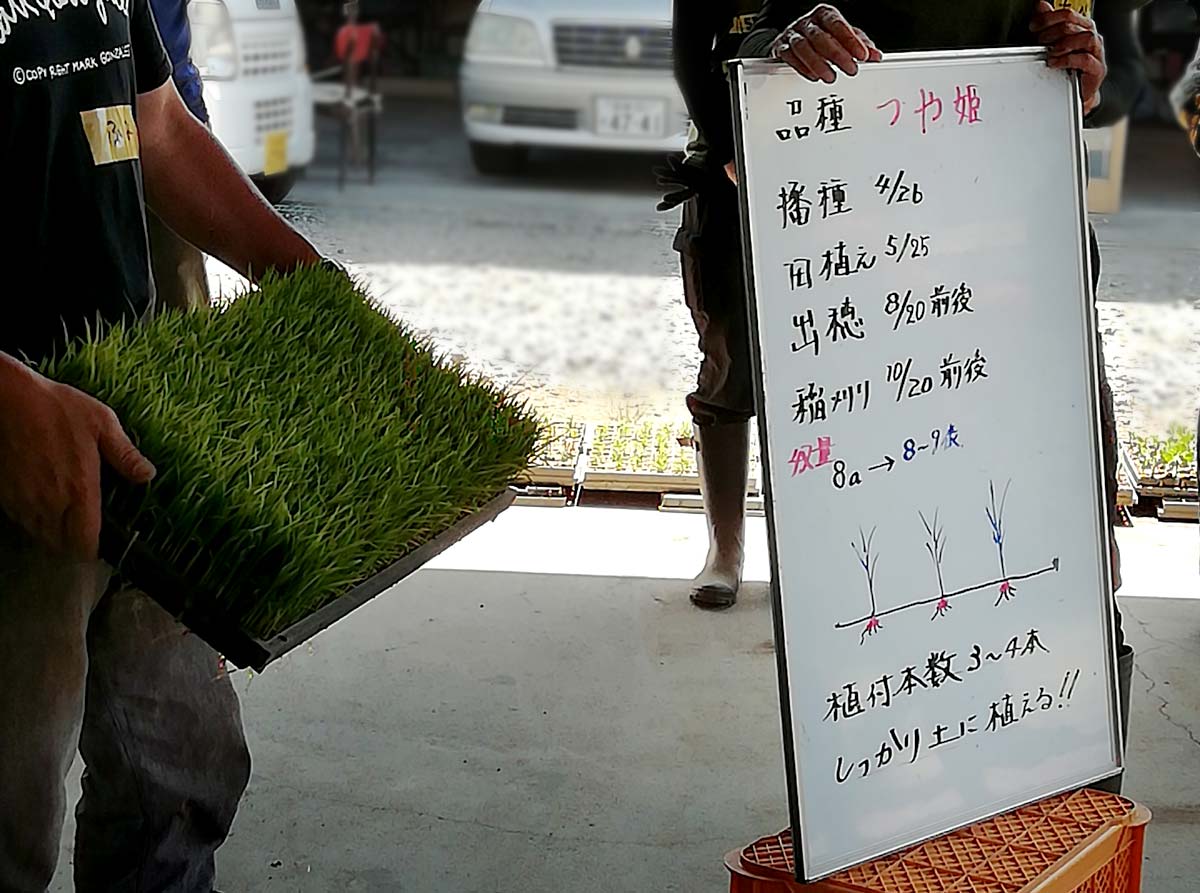 ©COPYRIGHT MARK GONZALES
47-41
品種 つや姫
播種 4/26
田植え 5/25
出穂 8/20前後
稲刈り 10/20前後
収量 8a→8~9俵
植付本数3~4本
しっかり土に植える!!